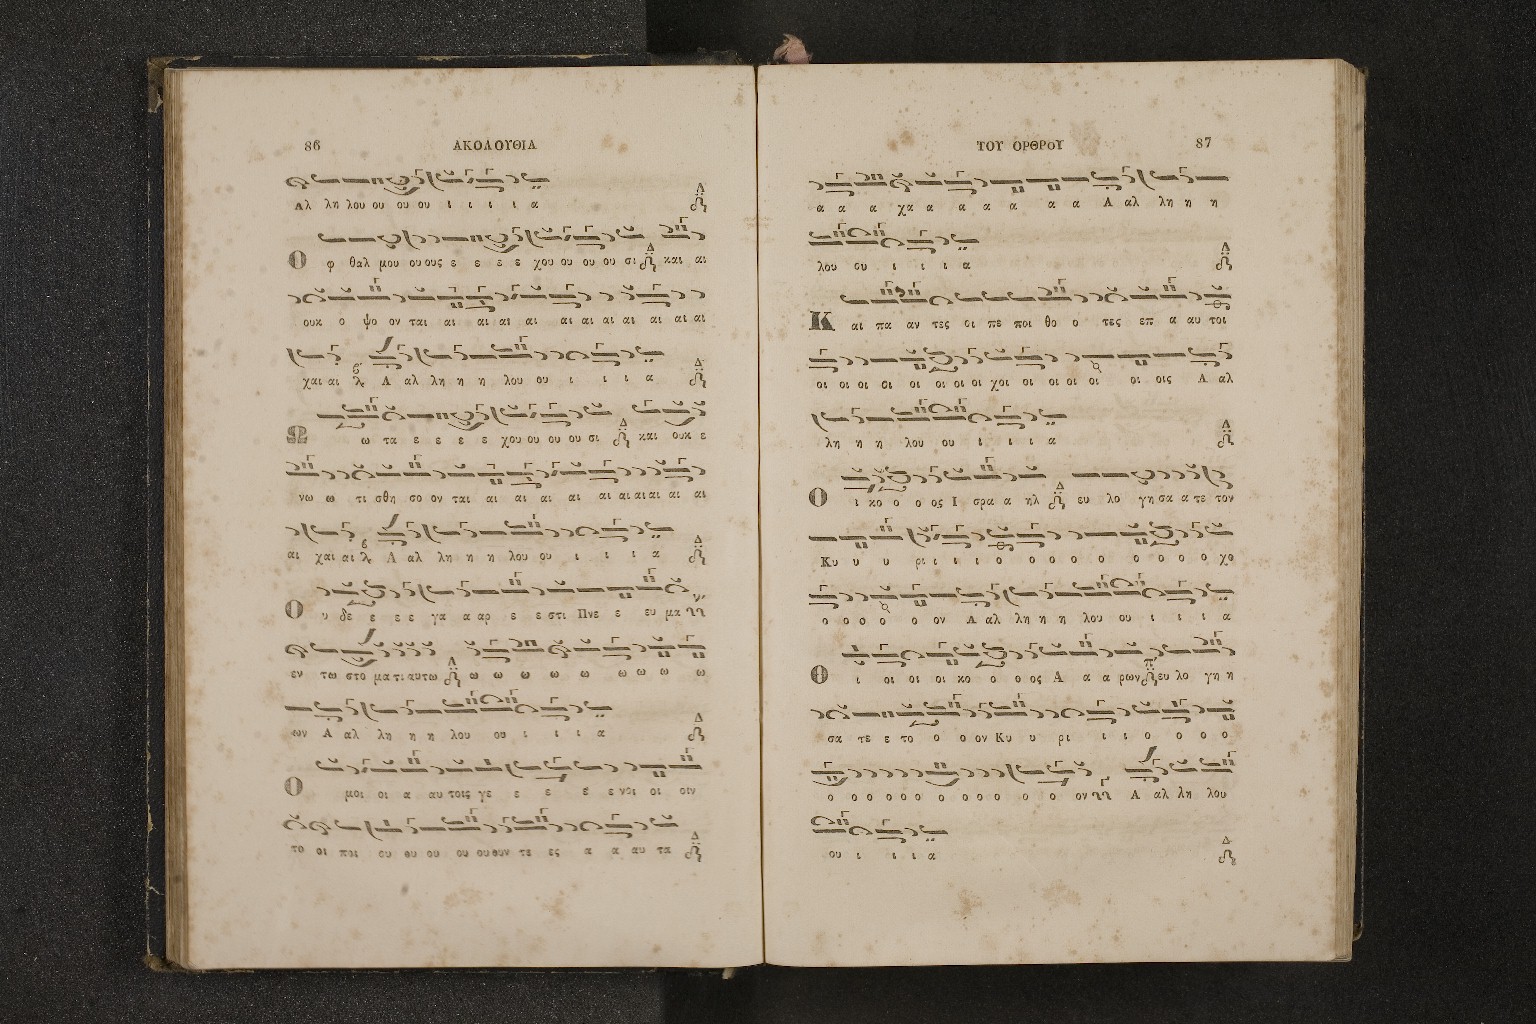 86 ΑΚΟΛΟΥΘΙΑ
Αλ λη λου ου ου ου ι ι ι ι α
Ο φ θαλ μου ου ους ε ε ε ε χου ου ου ου σι και αι
ουκ ο ψο ον ται αι αι αι αι αι αι αι αι αι αι αι
χαι αι Α αλ λη η η λου ου ι ι ι α
Ω ω τα ε ε ε ε χου ου ου ου σι και ουκ ε
νω ω τι σθη σο ον ται αι αι αι αι αι αι αι αι αι αι
αι χαι αι Α αλ λη η η λου ου ι ι ι α
Ο υ δε ε ε ε γα α αρ ε ε στι Πνε ε ευ μα
εν τω στο μα τι αυτω ω ω ω ω ω ω ω ω ω
ων Α αλ λη η η λου ου ι ι ι α
Ο μοι οι α αυ τοις γε ε ε ε ε νοι οι οιν
το οι ποι ου ου ου ου ου ουν τε ες α α αυ τα
ΤΟΥ ΟΡΘΡΟΥ 87
α α α χα α α α α α α Α αλ λη η η
λου ου ι ι ι α
Κ αι πα αν τες οι πε ποι θο ο τες επ α αυ τοι
οι οι οι οι οι οι οι οι χοι οι οι οι οι οι οις Α αλ
λη η η λου ου ι ι ι α
Ο ι κο ο ο ος Ι σρα α ηλ ευ λο γη σα α τε τον
Κυ υ υ ρι ι ι ι ο ο ο ο ο ο ο ο ο χο
ο ο ο ο ο ον Α αλ λη η η λου ου ι ι ι α
Ο ι οι οι οι κο ο ο ος Α α α ρων ευ λο γη η
σα τε ε το ο ο ον Κυ υ ρι ι ι ο ο ο ο
ο ο ο ο ο ο ο ο ο ο ο ο ον Α αλ λη λου
ου ι ι ι α